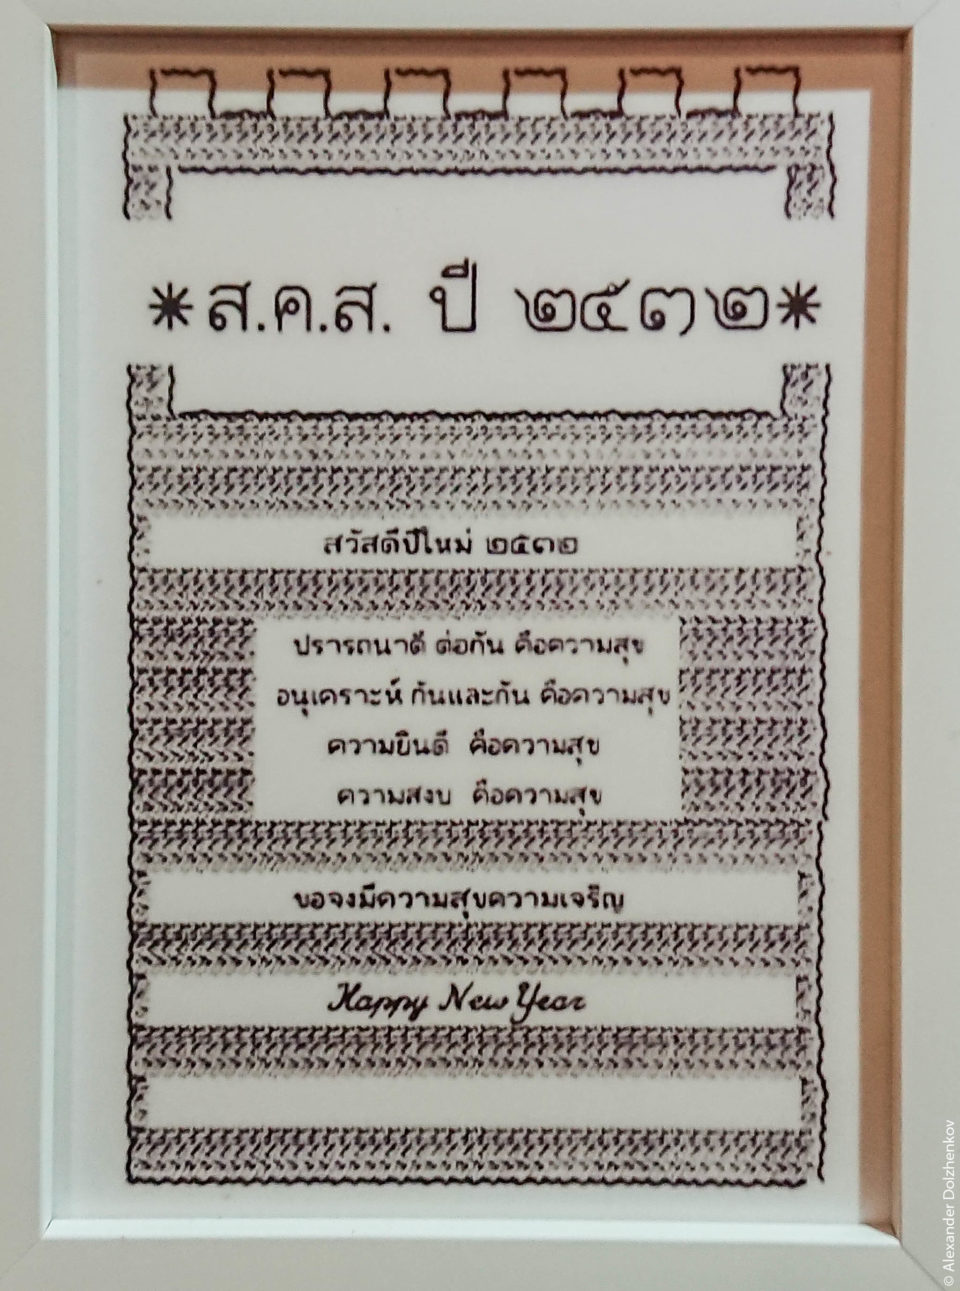 *ส.ค.ส. ปี ๒๕๓๒*
สวัสดีปีใหม่ ๒๕๓๒
ปรารถนาดี ต่อกัน คือความสุข
อนุเคราะห์ กันและกัน คือความสุข
ความยินดี คือความสุข
ความสงบ คือความสุข
ขอจงมีความสุขความเจริญ
Happy New Year
© Alexander Dolzhenkov